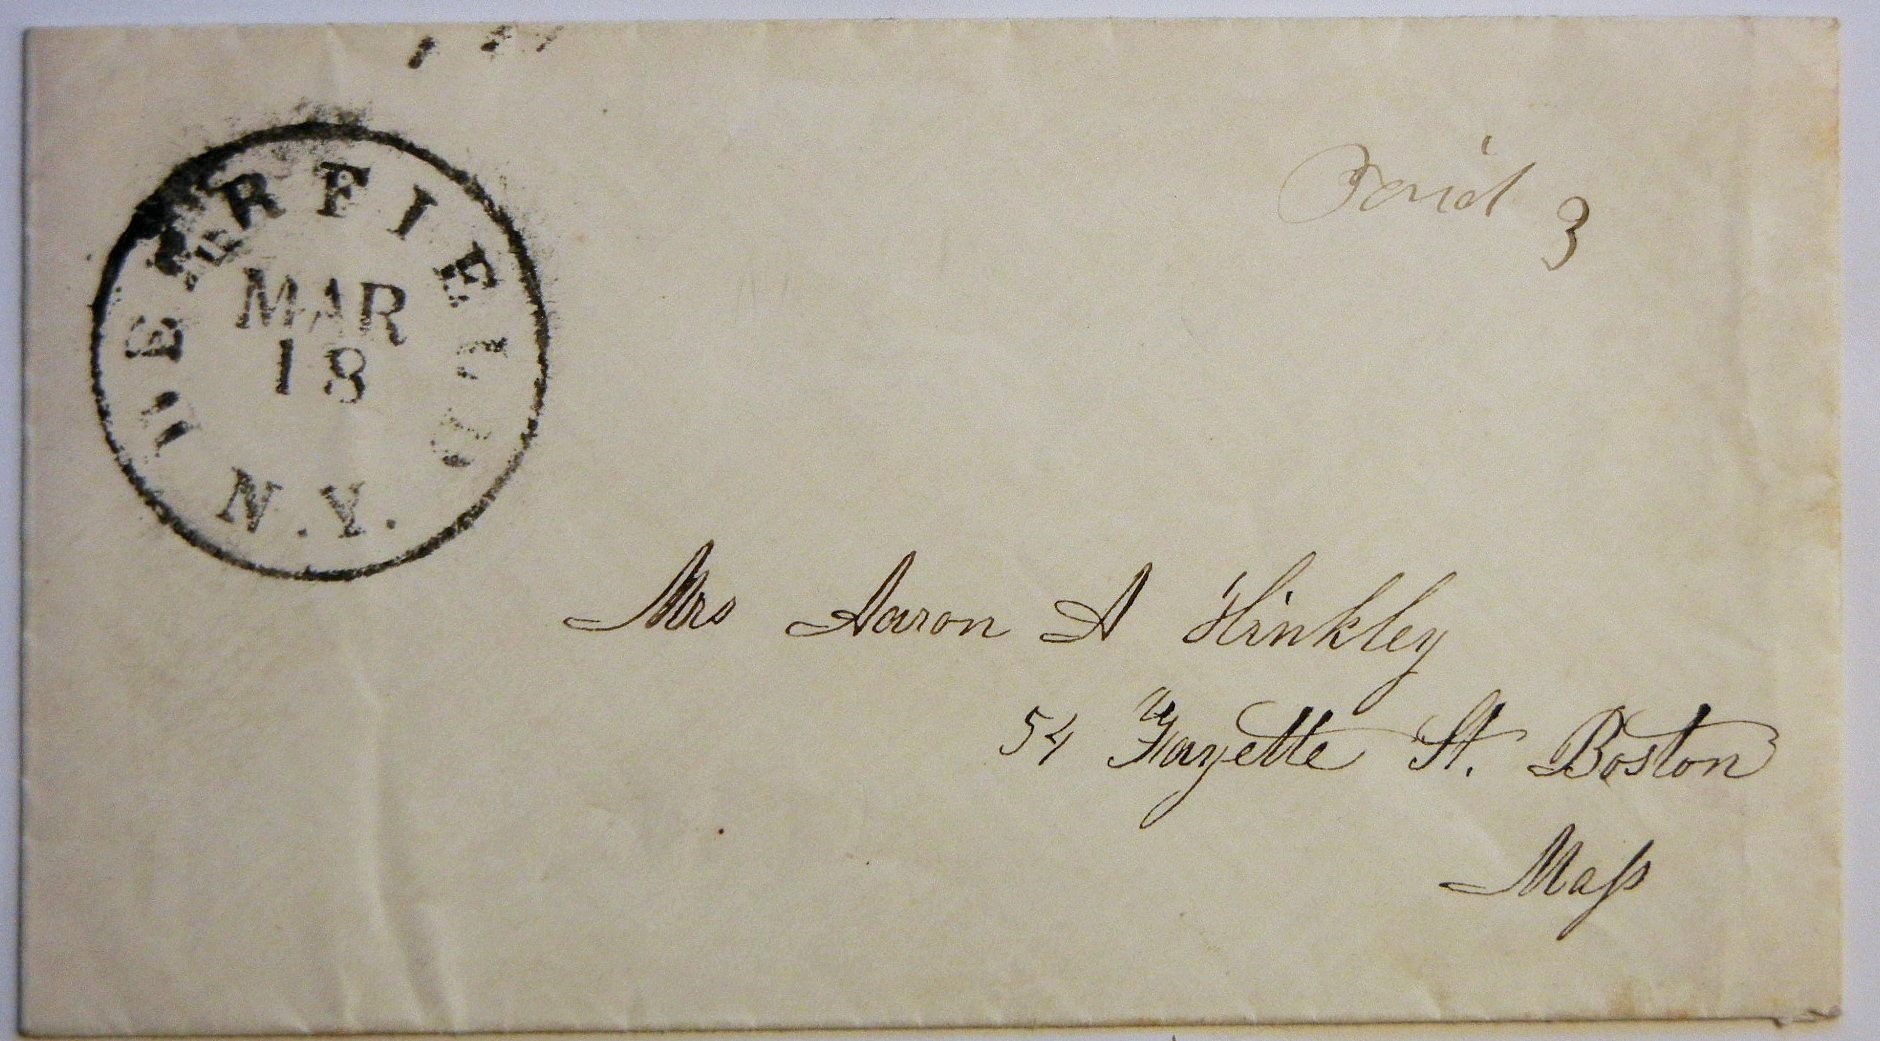 DEERFIELD
MAR
18
N.Y.
Paid 3
Mrs Aaron A Hinkley
54 Fayette St. Boston
Maſs